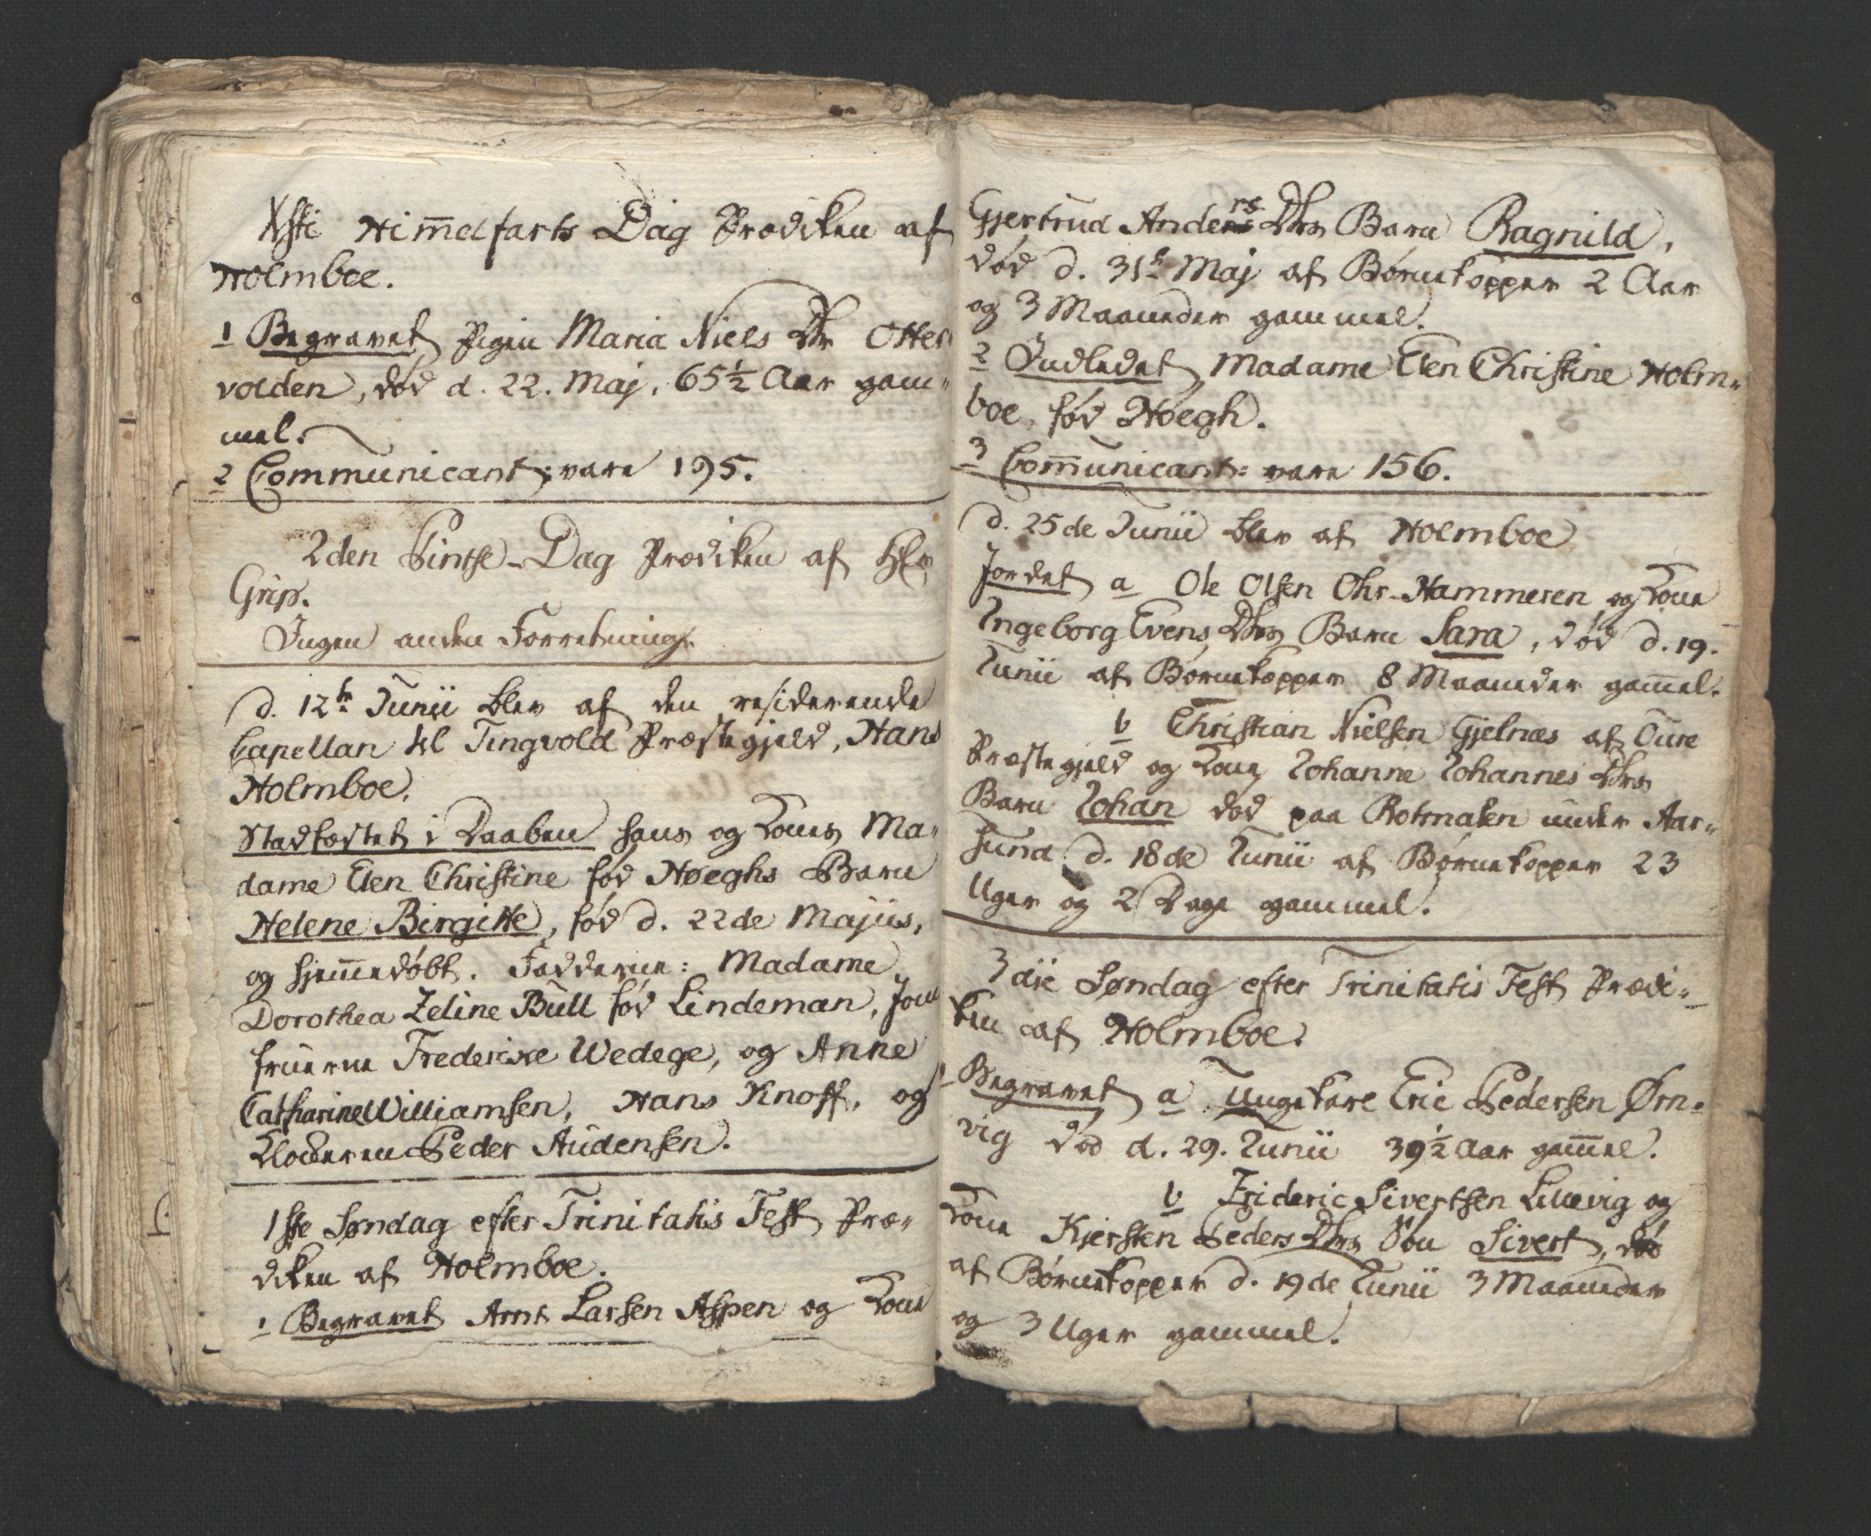 Xsti Him̅elfarts Dag Prædiken af
Holmboe.
1 Begravet Pigen Maria Niels Dtr Otter
volden, død d. 22. Maj, 65½ Aar gam-
mel.
2 Communicant: vare 195.
2den Pintse-Dag Prædiken af Hr
Grip.
Ingen anden Forretning.
d. 12te Junii blev af den residerende
Capellan til Tingvold Præstegjeld, Hans
Holmboe.
Stadfæstet i Daaben hans og Kones Ma-
dame Elen Christine fød Høeghs Barn
Helene Birgitte, fød d. 22de Majus,
og hjem̅edøbt. Fadderne: Madame
Dorothea Zeline Bull fød Lindeman, Jom
fruerne Fredericke Wedege, og Anne
Catharine Williamsen, Hans Knoff, og
Klockeren Peder Audensen.
1ste Søndag efter Trinitatis Fest Præ-
diken af Holmboe.
1 Begravet Arnt Larsen Aspen og Kone
Gjertrud Anders Dtrs Barn Ragnild,
død d. 31te Maj af Børnekopper 2 Aar
og 3 Maaneder gammel.
2 Indledet Madame Elen Christine Holm-
boe, fød Høegh.
3 Com̅unicant: vare 156.
d. 25de Junii blev af Holmboe
Jordet a Ole Olsen Ohr-Hammeren og Kone
Ingeborg Evens Dtrs Barn Sara, død d. 19.
Junii af Børnekopper 8 Maaneder gam̅el.
b Christian Nielsen Gjelnæs af Øure
Præstegjeld og Kone Johanne Johannes Dtrs
Barn Johan død paa Rotnaken under Aar-
sund d. 18de Junii af Børnekopper 23
Uger og 2 Dage gammel.
3die Søndag efter Trinitatis Fest Prædi-
ken af Holmboe.
1 Begravet a Ungekare Eric Pedersen Ørn-
vig død d. 29. Junii 39½ Aar gam̅el.
b Frideric Sivertsen Lillevig og
Kone Kjersten Peders Dtrs Søn Sivert, død
af Børnekopper d. 19de Junii 3 Maaneder
og 3 Uger gammel.